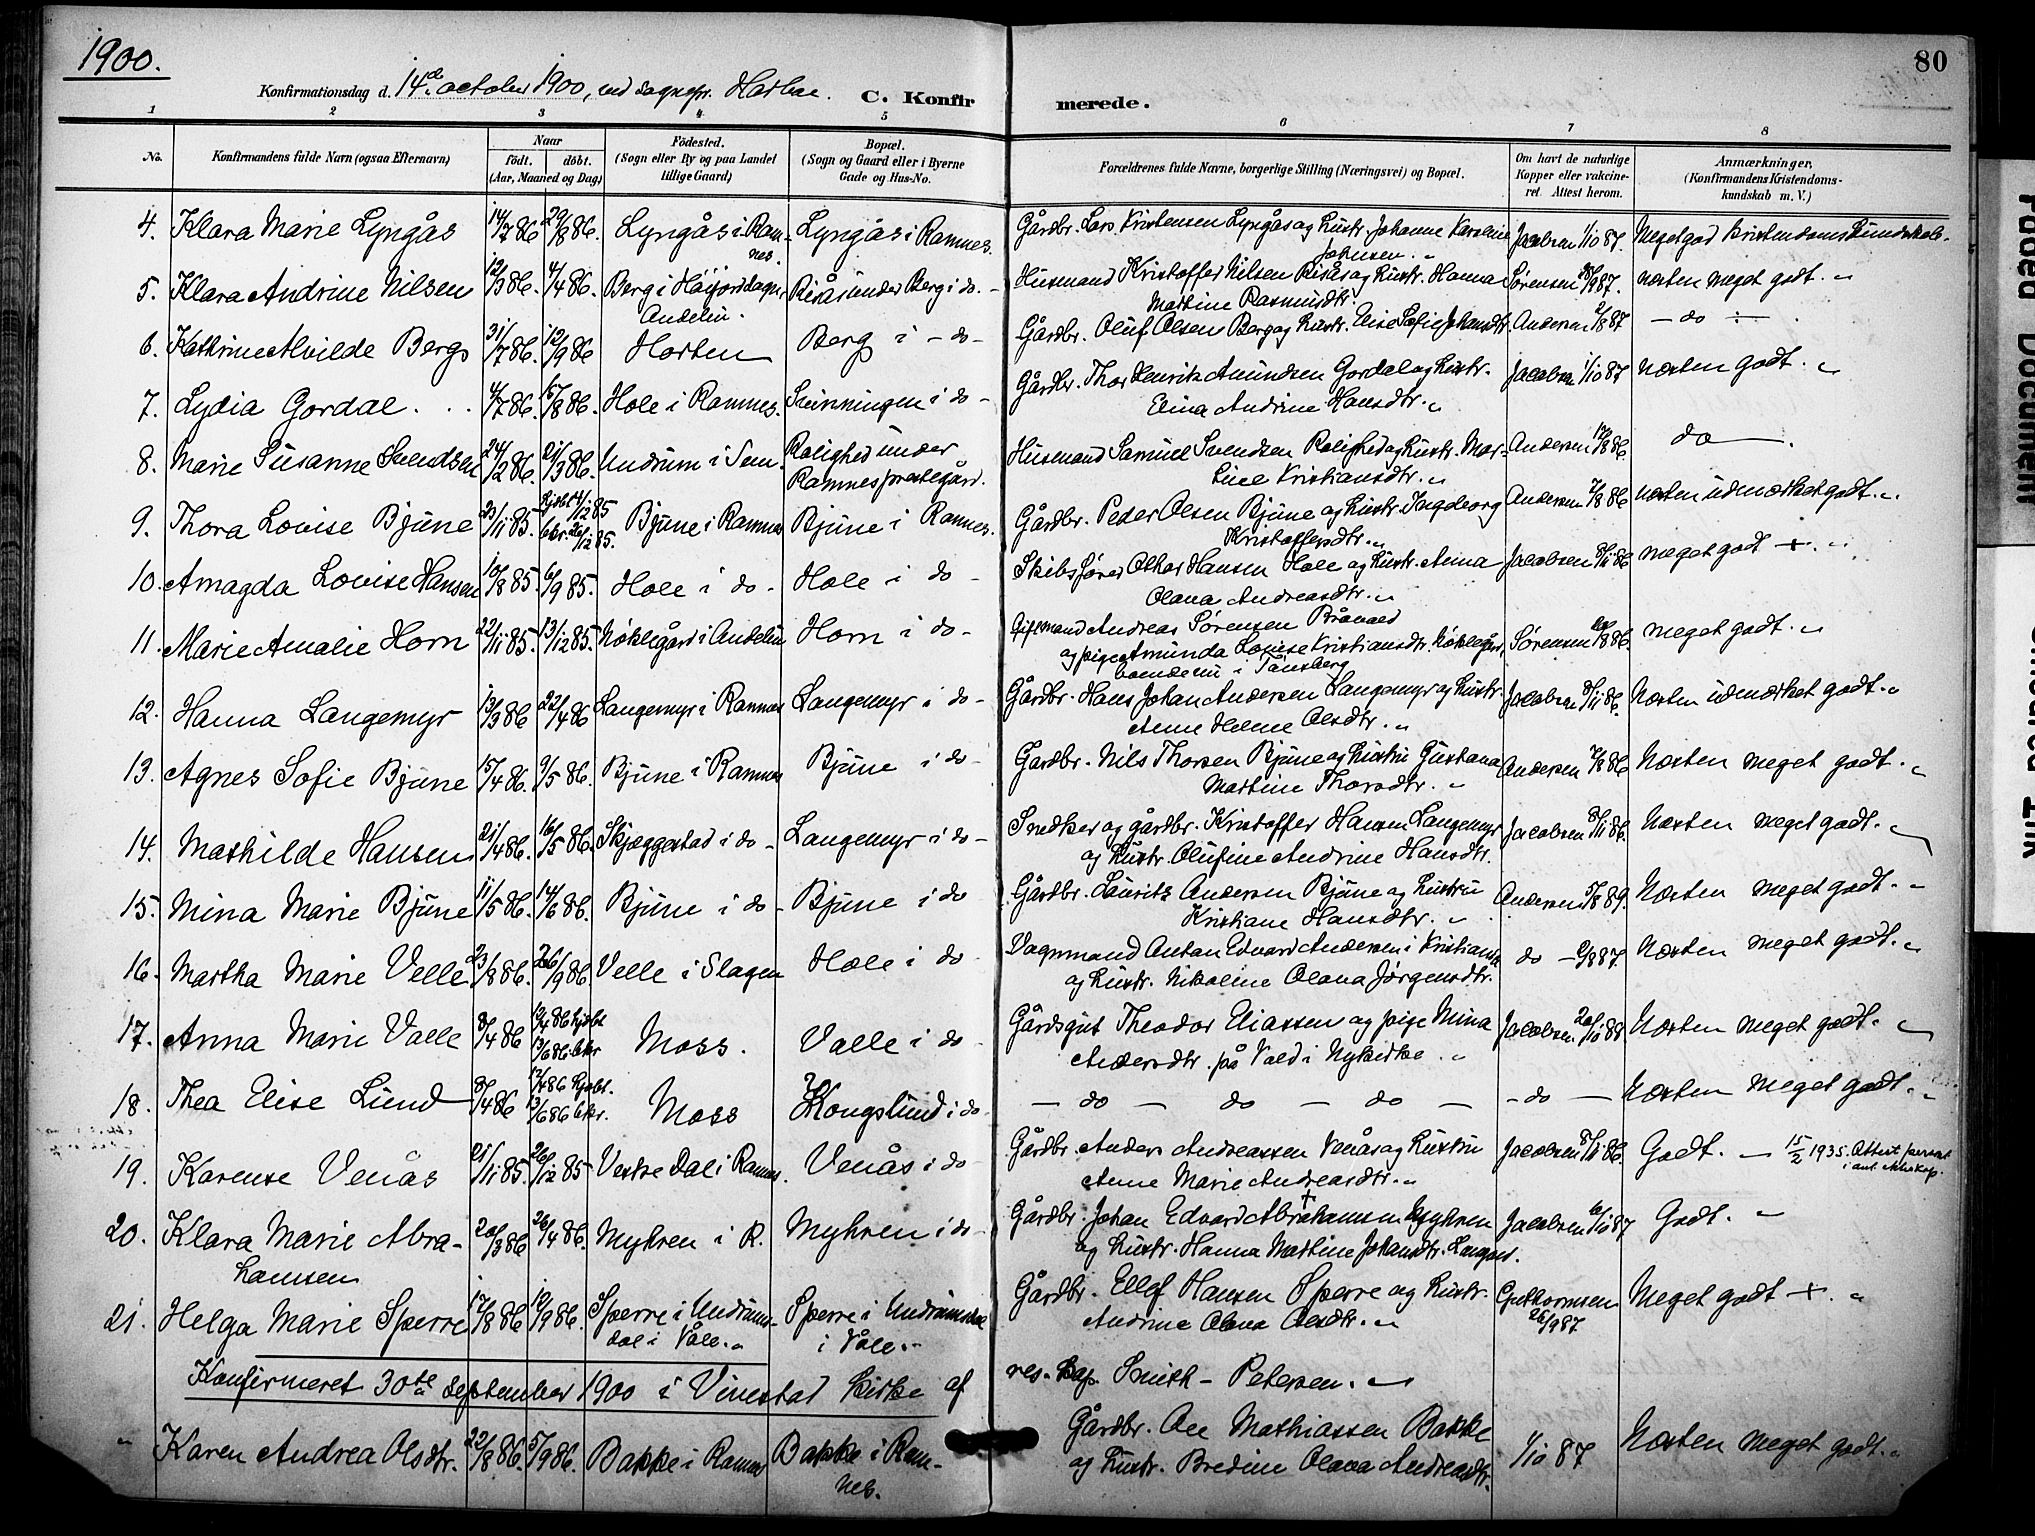 1900.
80
Konfirmationsdag d. 14de october 1900, ved sognepr. C. Konfirmerede.
1 2 3 4 5 6 7 8
No. Konfirmandens fulde Navn (ogsaa Efternavn) Naar født. døbt. (Aar, Maaned og Dag) Fødested. (Sogn eller By og paa Landet tillige Gaard) Bopæl. (Sogn og Gaard eller i Byerne Gade og Hus-No. Forældrenes fulde Navne, borgerlige Stilling (Næringsvei) og Bopæl. Om havt de naturlige Kopper eller vakcineret. Attest herom. Anmærkninger, (Konfirmandens Kristendomskundskab m. V.)
4. Klara Marie Lyngås 14/7 86 29/8 86. Lyngås i Ramnes. Lyngås i Ramnes. Gårdbr. Lars Kristensen Lyngås og hustr. Johanne Karoline Johnsen. Jacobsen 1/10 87. Meget god Kristendomskundskab.
5. Klara Andrine Nilsen 12/3 86. 4/4 86. Berg i Høijord sogn, Andebu. Risås under Berg i do. Husmand Kristoffer Nilsen Risås og hustr. Hanna Martine Rasmusdtr. Sørensen 18/9 87. næsten meget godt.
6. Kathrine Alvilde Berg 31/7 86. 12/9 86 Horten Berg i do Gårdbr. Oluf Olsen Berg og hustr. Elise Sofie Johansdtr. Andersen 2/8 87 do
7. Lydia Gordal 4/7 86. 15/8 86. Hole i Ramnes. Svinningen i do Gårdbr. Thor Henrik Amundsen Gordal og hustr. Elina Andrine Hansdtr. Jacobsen 1/10 87 næsten godt.
8. Marie Susanne Svendsen 24/2 86. 21/3 86. Undrum i Sem Rolighed under Ramnes prestegård. Husmand Samuel Svendsen Rolighed og hustr. Marline Kristiansdtr. Andersen 12/8 86 do
9. Thora Lovise Bjune 23/11 85. hjdbt 4/12 85 bkr. 26/12 85. Bjune i Ramnes Bjune i Ramnes. Gårdbr. Peder Olsen Bjune og hustr. Ingeborg Kristoffersdtr. Andersen 7/8 86 næsten udmærket godt.
10. Amagda Lovise Hansen 10/8 85. 6/9 85. Hole i do Hole i do Skibsfører Othar Hansen Hole og hustr. Anna Olava Andreasdtr. Jacobsen 8/11 86 meget godt +.
11. Marie Amalie Horn 22/11 85. 13/12 85. Nøklegård i Andebu Horn i do Giftmand Andreas Sørensen og pige Amunda Lovise Kristiansdtr. Nøklegård, boende nu i Tønsberg Sørensen 20/8 86. meget godt.
12. Hanna Langemyr 13/3 86 22/4 86 Langemyr i Ramnes Langemyr i do Gårdbr. Hans Johan Andersen Langemyr og hustr. Anne Helene Olsdtr. Jacobsen 8/11 86. Næsten udmærket godt.
13. Agnes Sofie Bjune 15/4 86. 9/5 86. Bjune i Ramnes Bjune i do Gårdbr. Nils Thorsen Bjune og hustru Gustava Martine Thorsdtr. Andersen 7/8 86 Næsten meget godt.
14. Mathilde Hansen 21/4 86. 16/5 86. Skjæggestad i do Langemyr i do Snedker og gårdbr. Kristoffer Hansen Langemyr og hustr. Olufine Andrine Hansdtr. Jacobsen 8/11 86. Næsten meget godt.
15. Mina Marie Bjune 11/5 86. 14/6 86. Bjune i do Bjune i do Gårdbr. Lauritz Andersen Bjune og hustru Kristiane Hansdtr. Andersen 5/8 89. Næsten meget godt.
16. Martha Marie Velle 23/8 86. 26/9 86. Velle i Slagen Hole i do Vognmand Anton Edvard Andersen i Kristiania og hustr. Nikoline Olava Jørgensdtr. do 2/8 87. Næsten meget godt.
17. Anna Marie Valle 8/4 86 12/4 86 hjdbt 13/6 86 bkr Moss. Valle i do Gårdsgut Theodor Eliassen og pige Mina Andersdtr. på Vold i Nykirke. Jacobsen 20/10 88 Næsten meget godt.
18. Thea Elise Lund 8/4 86 12/4 86 hjdbt. 13/6 86 bkr. Moss Kongslund i do do do do do Næsten meget godt.
19. Karense Venås 21/11 85. 26/12 85 Vestre Dal i Ramnes. Venås i do Gårdbr. Anders Andreassen Venås og hustru Anne Marie Andreasdtr. Jacobsen 8/11 86. Godt. 15/2 1935. Attest
20. Klara Marie Abrahamsen 20/3 86 26/4 86. Myhren i R. Myhren i do Gårdbr. Johan Edvard Abrahamsen Myhren og hustr. Hanna Martine Johansdtr. Jacobsen 6/10 87 Godt.
21. Helga Marie Sperre 17/8 86 19/9 86. Sperre i Undrumsdal i Våle. Sperre i Undrumsdal i Våle. Gårdbr. Ellef Hansen Sperre og hustr. Andrine Olava Olsdtr. Guthormsen 26/9 87. Meget godt +.
Konfirmeret 30te september 1900 i Vivestad kirke af res. kap. Smith-Petersen.
" Karen Andrea Olsdtr. 22/8 86. 5/9 86. Bakke i Ramnes Bakke i Ramnes. Gårdbr. Ole Mathiassen Bakke og hustr. Bredine Olava Andreasdtr. 1/10 87 Næsten meget godt.